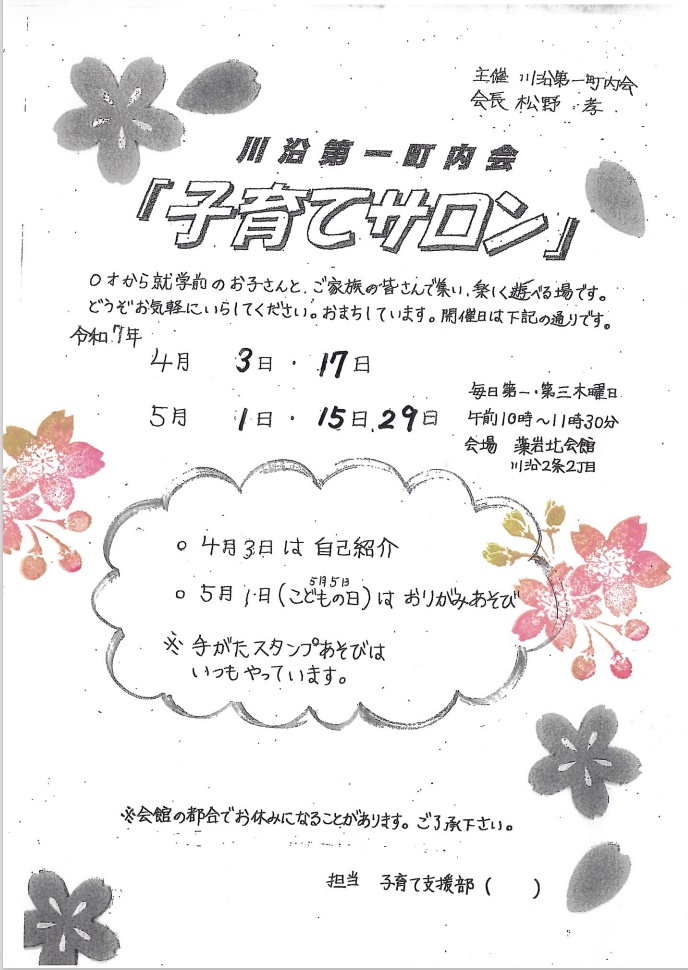 主催 川沿第一町内会
会長 松野 孝
川沿第一町内会
『子育てサロン』
0才から就学前のお子さんと、ご家族の皆さんで集い、楽しく遊べる場です。
どうぞお気軽にいらしてください。おまちしています。開催日は下記の通りです。
令和7年
4月 3日・17日
5月 1日・15日、29日
毎日第一・第三木曜日
午前10時〜11時30分
会場 藻岩北会館
川沿2条2丁目
○ 4月3日は 自己紹介
5月5日
○ 5月1日(こどもの日)は おりがみあそび
※ 手がたスタンプあそびは
いつもやっています。
※会館の都合でお休みになることがあります。ご了承下さい。
担当 子育て支援部 ( )